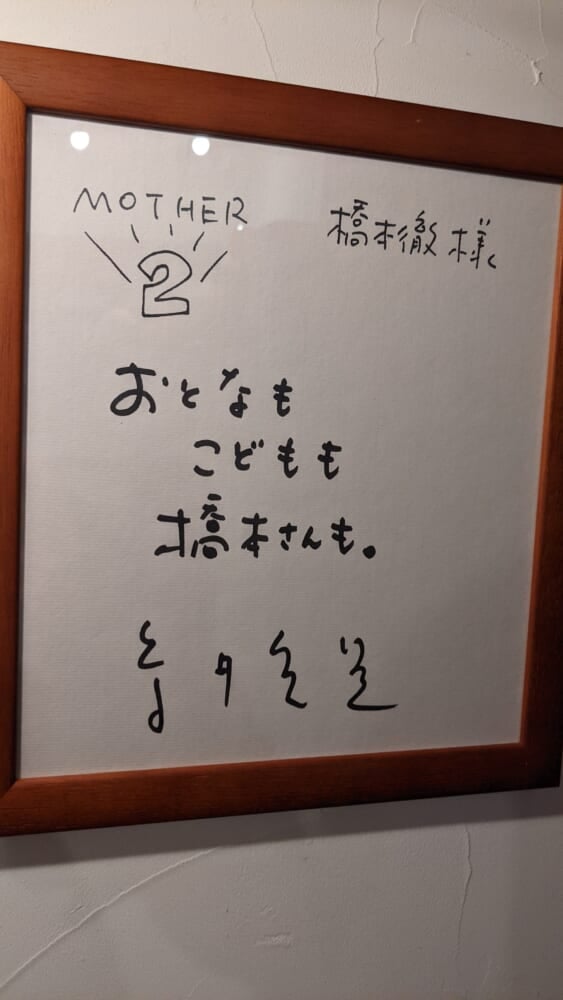 MOTHER
2
橋本徹様
おとなも
こどもも
橋本さんも。